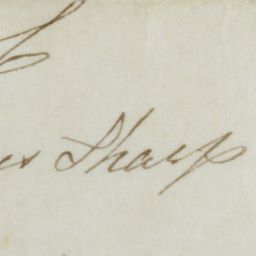 es Sharp